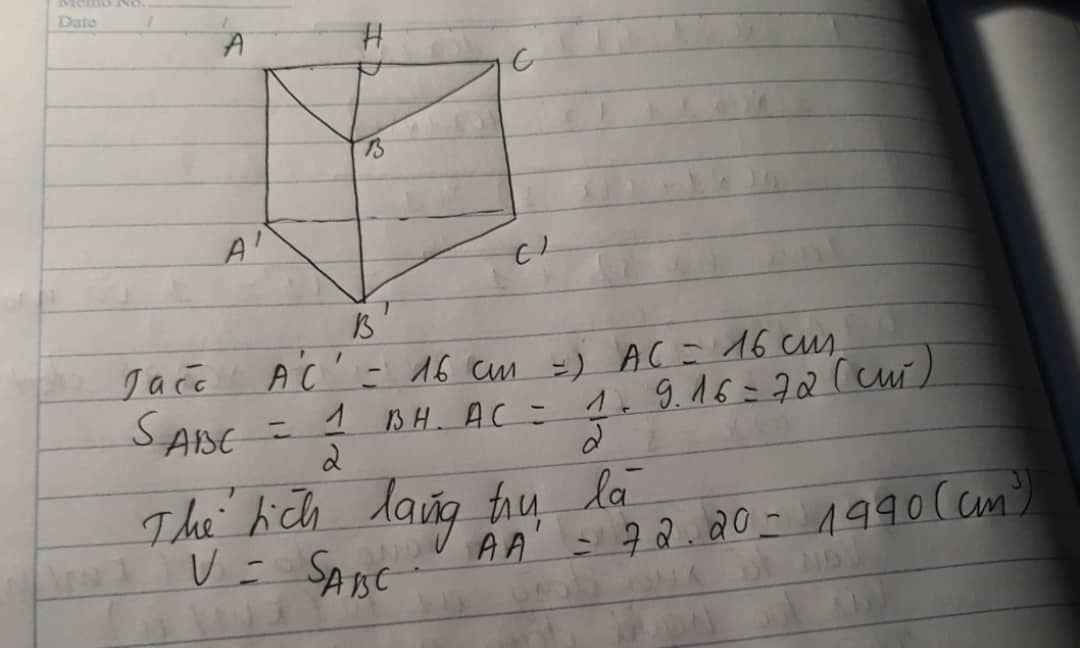 Memo No.
Date / /
A H C
B
A' C'
B'
Ta có A'C' = 16 cm => AC = 16 cm
S ABC = 1/2 BH. AC = 1/2 . 9.16 = 72 (cm²)
Thể tích lăng trụ là
V = S ABC . AA' = 72.20 = 1990 (cm³)